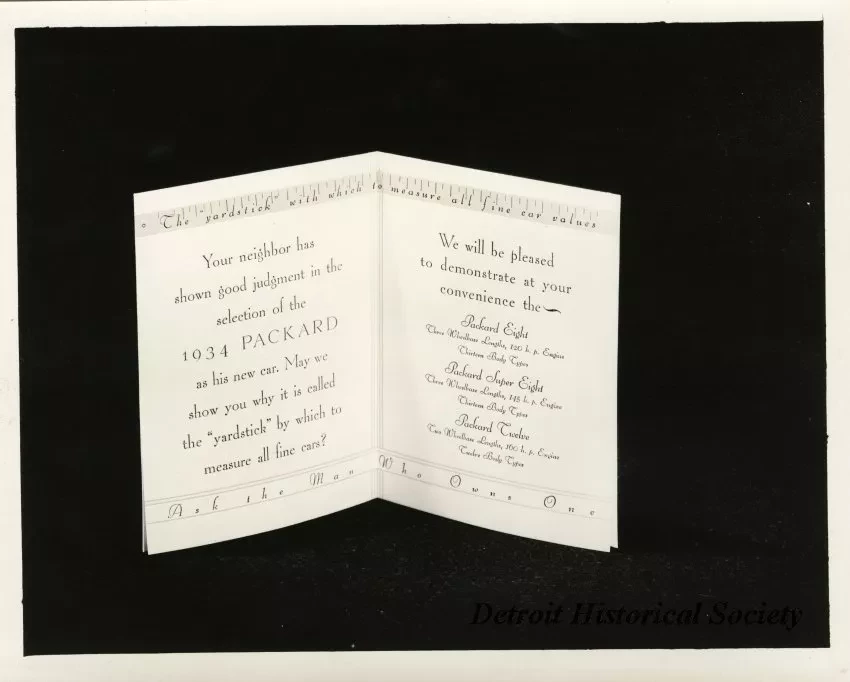 The "yardstick" with which to measure all fine car values
Your neighbor has
shown good judgment in the
selection of the
1934 PACKARD
as his new car. May we
show you why it is called
the "yardstick" by which to
measure all fine cars?
We will be pleased
to demonstrate at your
convenience the
Packard Eight
Three Wheelbase Lengths, 120 h. p. Engine
Thirteen Body Types
Packard Super Eight
Three Wheelbase Lengths, 145 h. p. Engine
Thirteen Body Types
Packard Twelve
Two Wheelbase Lengths, 160 h. p. Engine
Twelve Body Types
Ask the Man Who Owns One
Detroit Historical Society